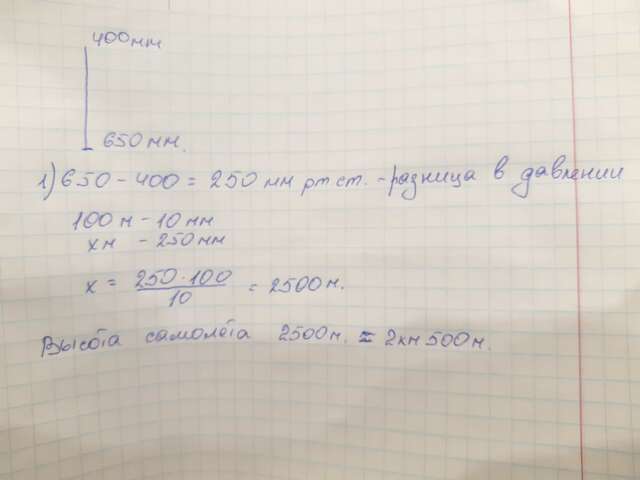 400мм
650 мм.
1) 650 - 400 = 250 мм рт ст. - разница в давлении
100 м - 10 мм
х м - 250 мм
х = 250 · 100 / 10 = 2500 м.
Высота самолёта 2500 м. = 2 км 500 м.